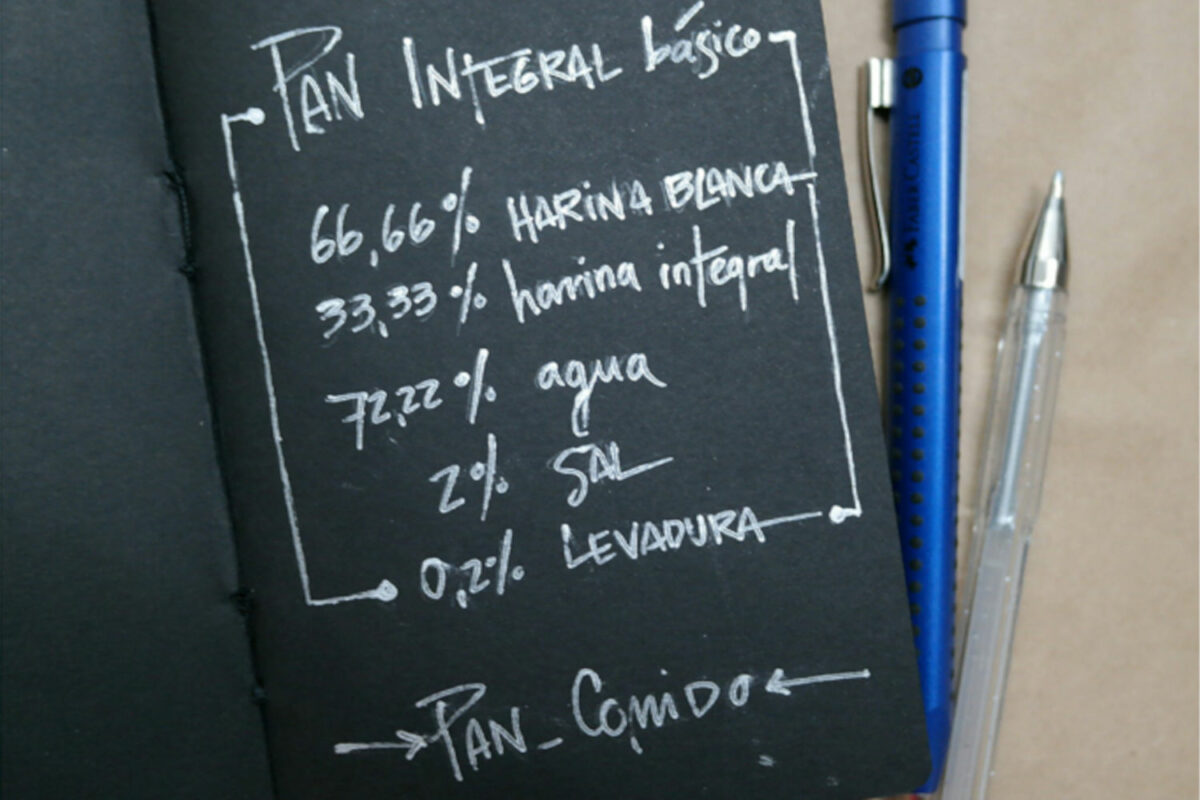 PAN INTEGRAL básico
66,66% HARINA BLANCA
33,33% harina integral
72,22% agua
2% SAL
0,2% LEVADURA
PAN_COMIDO
FABER-CASTELL